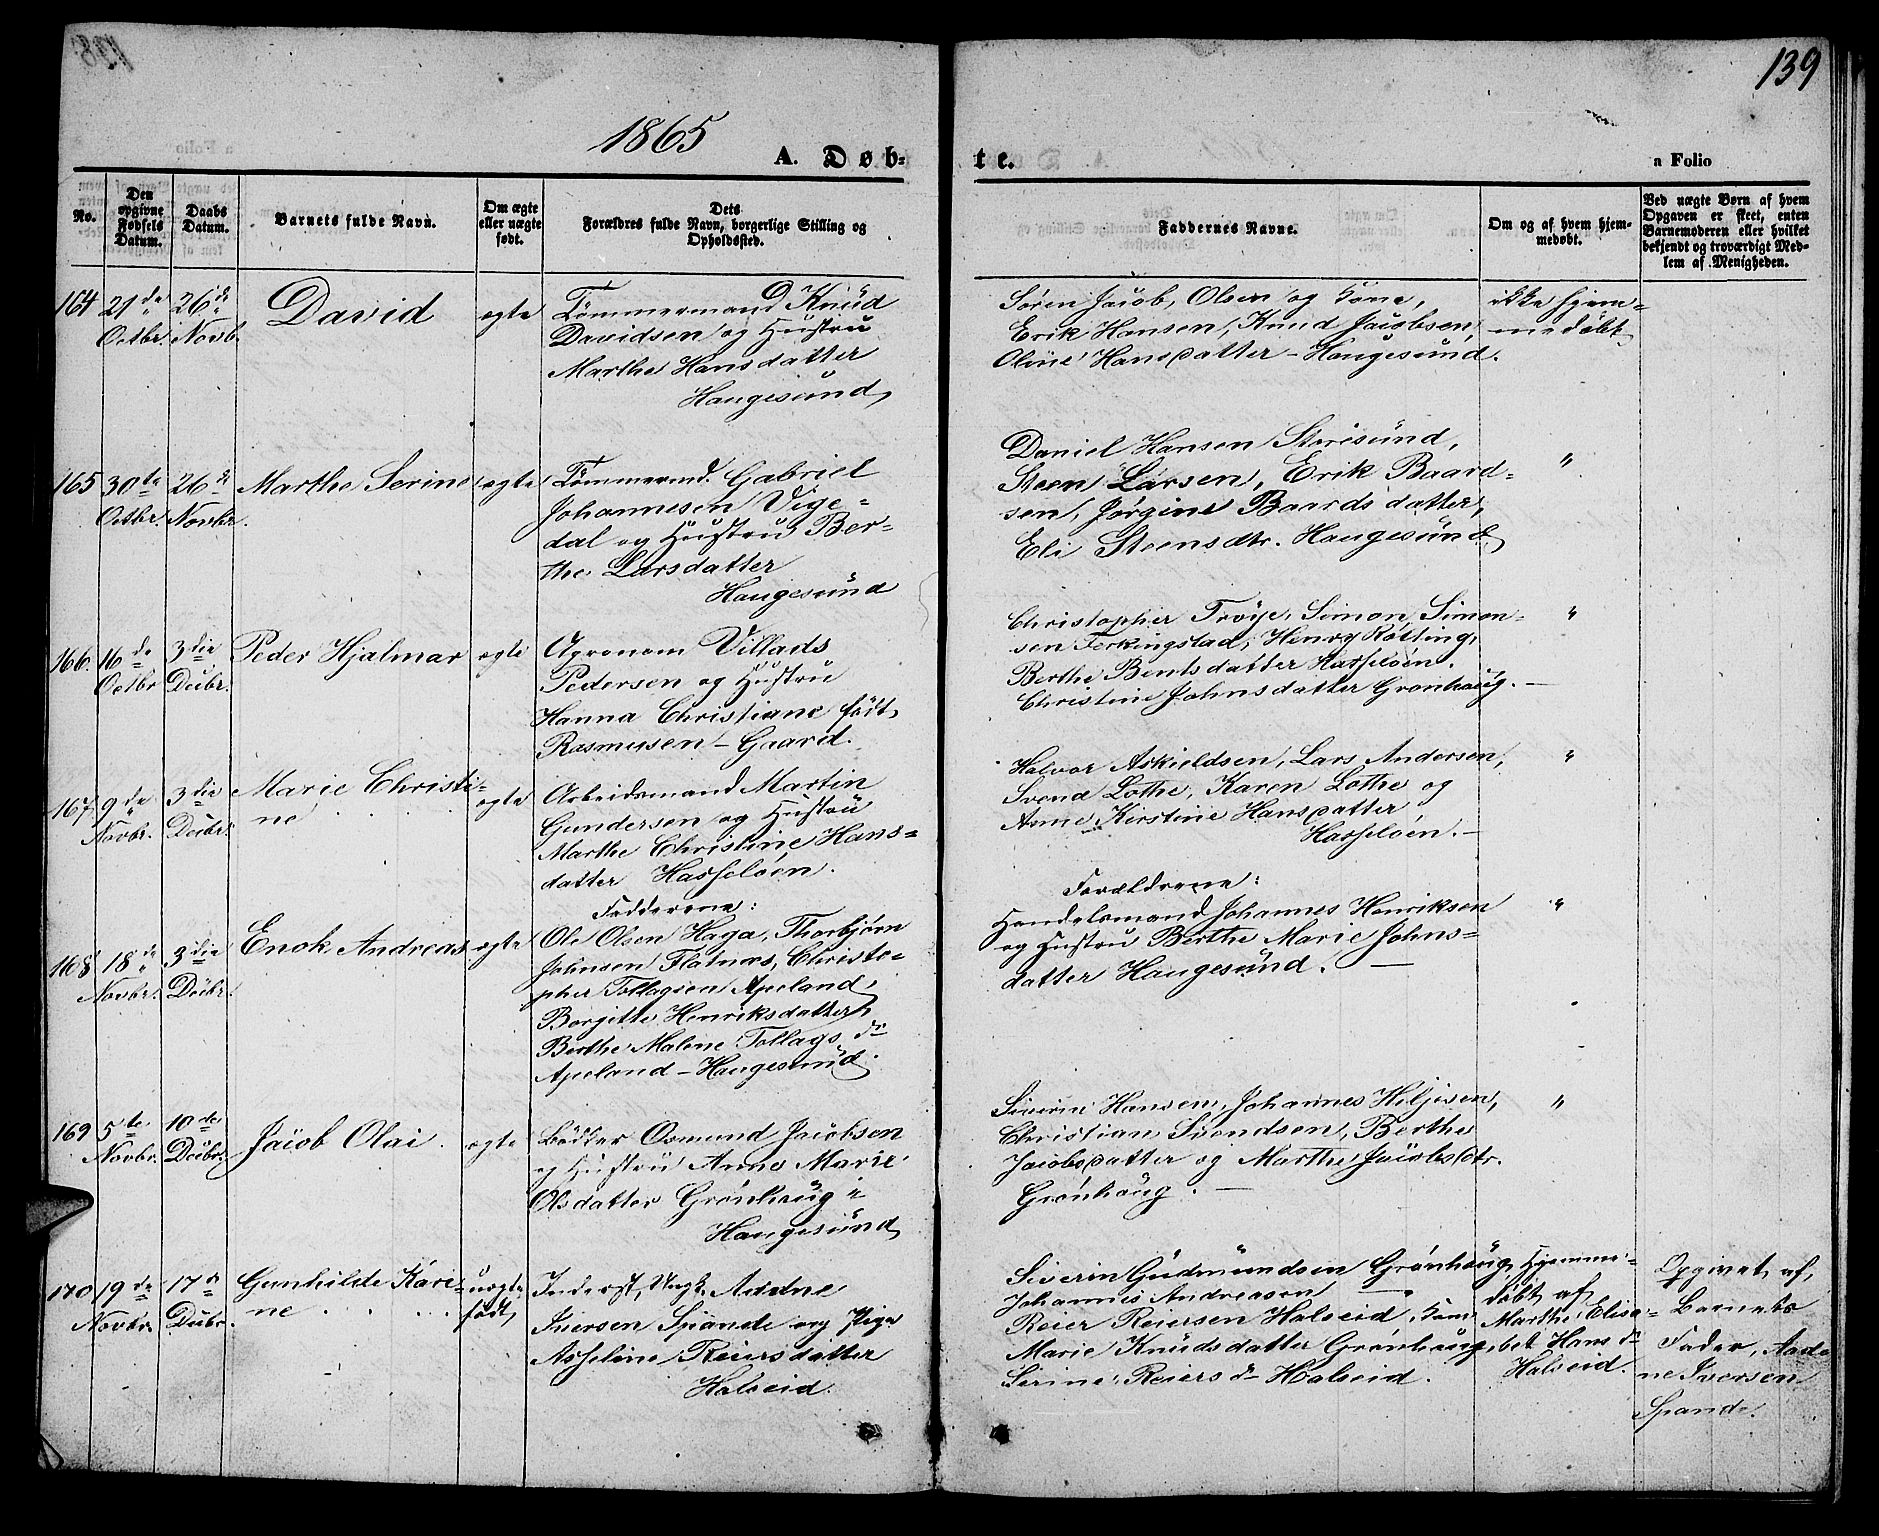 139
1865
A. Døb-
te.
a Folio
No.
Den
opgivne
Fødsels
Datum.
Daabs
Datum.
Barnets fulde Navn.
Om ægte
eller uægte
født.
Dets
Forældres fulde Navn, borgerlige Stilling og
Opholdssted.
Faddernes Navne.
Om og af hvem hjem-
medøbt.
Ved uægte Børn af hvem
Opgaven er skeet, enten
Barnemoderen eller hvilket
bekjendt og troværdigt Med-
lem af Menigheden.
164 21de 26de David ægte Tømmermand Knud
Octbr. Novb. Davidsen og Hustru
Marthe Hansdatter
Haugesund,
Søren Jacob Olsen og Kone,
Erik Hansen, Knud Jacobsen,
Oline Hansdatter – Haugesund.
ikke hjem-
medøbt
165 30te 26de Marthe Serine ægte Tømmermd. Gabriel
Octbr. Novbr. Johannesen Vige-
dal og Hustru Ber-
the Larsdatter
Haugesund
Daniel Hansen Storesund,
Steen Larsen, Erik Baard-
sen, Jørgine Baardsdatter,
Eli Steensdtr. Haugesund
"
166. 16de 3die Peder Hjalmar ægte Agronom Villads
Octbr Decbr. Pedersen og Hustru
Hanna Christiane født
Rasmusen – Gaard.
Christopher Trøye, Simon Simon-
sen Ferkingstad, Henry Kotting,
Berthe Bentsdatter Hasseløen.
Christine Johnsdatter Grønhaug. –
"
167. 9de 3die Marie Christi- ægte Arbeidsmand Martin
Novbr. Decbr. ne Gundersen og Hustru
Marthe Christine Hans-
datter Hasseløen.
Halvor Askieldsen, Lars Andersen,
Svend Lothe, Karen Lothe og
Anne Kirstine Hansdatter
Hasseløen. –
"
Fadderene:
168 18de 3die Enok Andreas ægte Ole Olsen Haga, Thorbjørn
Novbr. Decbr. Johnsen Flatnæs, Christo-
pher Tollagsen Apeland,
Borgitte Henriksdatter,
Berthe Malene Tollags dr
Apeland – Haugesund.
Forældrene:
Handelsmand Johannes Henriksen
og Hustru Berthe Marie Johns-
datter Haugesund. –
"
169 5te 10de Jacob Olai. ægte Bødker Osmund Jacobsen
Novbr. Decbr. og Hustru Anne Marie
Olsdatter Grønhaug i
Haugesund,
Siverin Hansen, Johannes Hiljesen,
Christian Svendsen, Berthe
Jacobsdatter og Marthe Jacobsdtr.
Grønhaug. –
"
170 19de 17de Gunhilde Kari- uægte Inderst, Ungk. Aadne
Novbr. Decbr. ne født Iversen Spande og Pige
Asseline Reiersdatter
Halseid.
Siverin Gudmundsen Grønhaug,
Johannes Andreasen –
Reier Reiersen Halseid, Kone
Marie Knudsdatter Grønhaug,
Serine Reiers dr Halseid.
Hjemme-
døbt af
Marthe Elisa-
bet Hans dr
Halseid.
Opgivet af
Barnets
Fader, Aad-
ne Iversen
Spande.